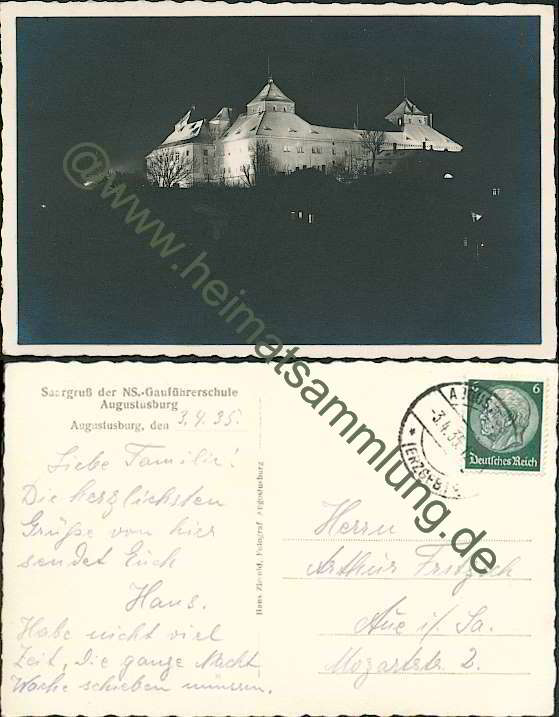 @www.heimatsammlung.de
Saargruß der NS.-Gauführerschule
Augustusburg
Augustusburg, den 3.4.35.
Liebe Familie!
Die herzlichsten
Grüße von hier
sendet Euch
Hans.
Habe nicht viel
Zeit. Die ganze Nacht
Wache schieben müssen.
Fotograf Augustusburg
6
Deutsches Reich
3.4.35
(ERZGEB)
Herrn
Arthur Fritzsch
Aue i/Sa.
Mozartstr. 2.